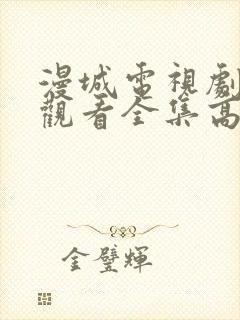 漫城電視劇
觀看全集高
金璧輝